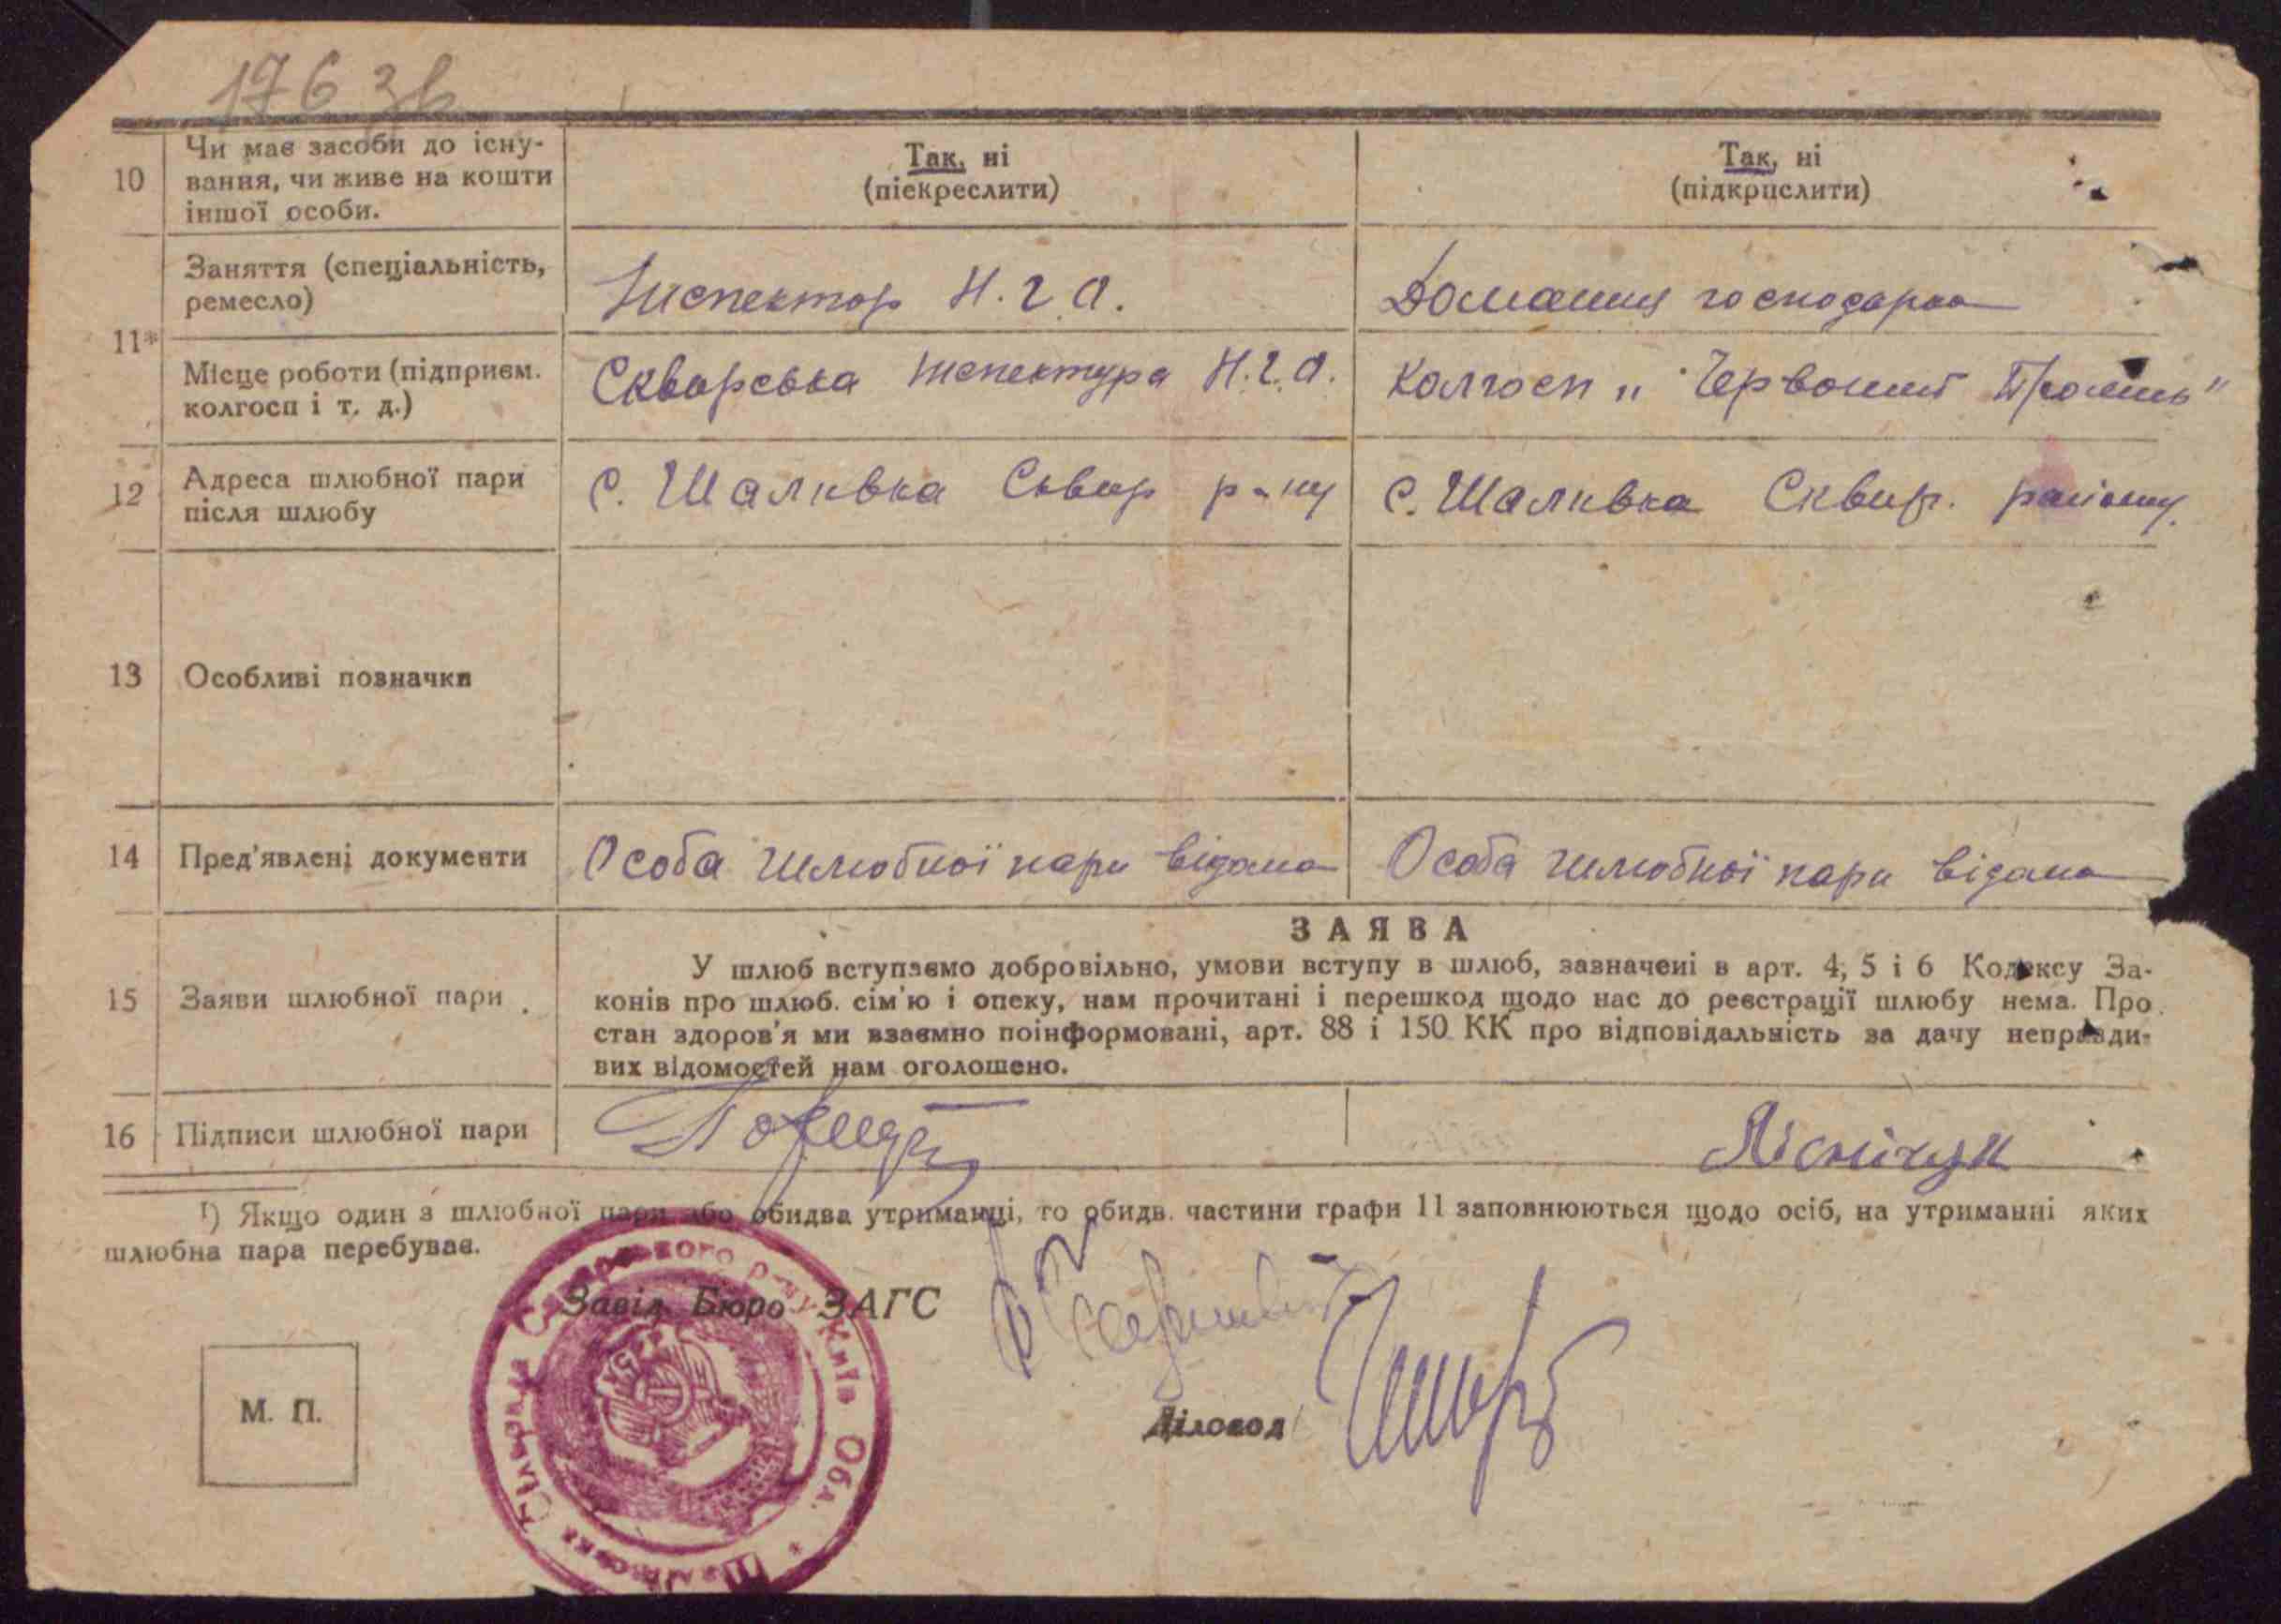 176 зв
10 Чи має засоби до існу-
вання, чи живе на кошти
іншої особи.
Так, ні
(піекреслити)
Так, ні
(підкрислити)
11*
Заняття (спеціальність,
ремесло)
Інспектор Н.Г.О.
Домашня господарка
Місце роботи (підприєм.
колгосп і т. д.)
Сквирська Інспектура Н.Г.О.
Колгосп „Червоний Промінь"
12 Адреса шлюбної пари
після шлюбу
с. Шаливка Сквир р-ну
с. Шаливка Сквир. району.
13 Особливі позначки
14 Пред'явлені документи
Особа шлюбної пари відома
Особа шлюбної пари відома
15 Заяви шлюбної пари
ЗАЯВА
У шлюб вступаємо добровільно, умови вступу в шлюб, зазначені в арт. 4, 5 і 6 Кодексу За-
конів про шлюб. сім'ю і опеку, нам прочитані і перешкод щодо нас до реєстрації шлюбу нема. Про
стан здоров'я ми взаємно поінформовані, арт. 88 і 150 КК про відповідальність за дачу неправди-
вих відомостей нам оголошено.
16 Підписи шлюбної пари
Лісничук
¹) Якщо один з шлюбної пари або обидва утриманці, то обидв. частини графи 11 заповнюються щодо осіб, на утриманні яких
шлюбна пара перебуває.
Завід. Бюро ЗАГС
М. П.
Діловод
Сільрада Сквирського р-ну Київ Обл. *
УСРР